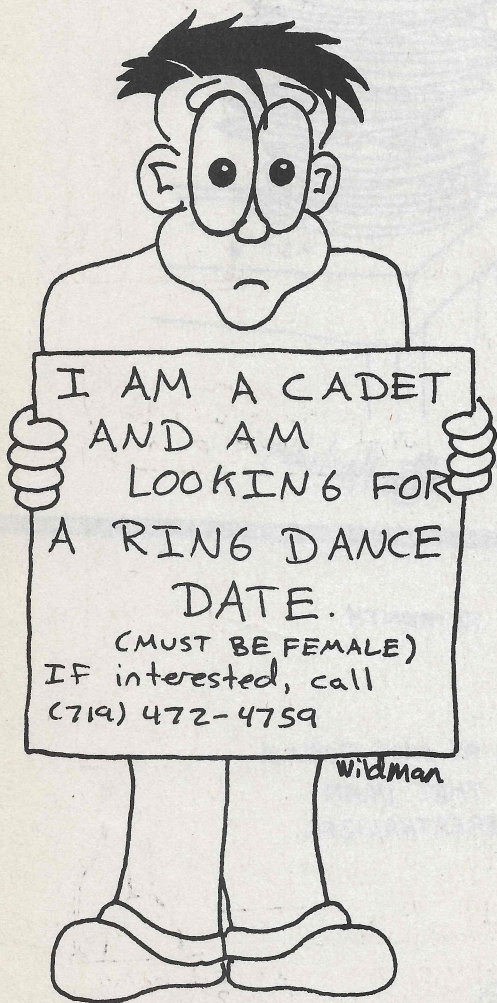 I AM A CADET
AND AM
LOOKING FOR
A RING DANCE
DATE.
(MUST BE FEMALE)
IF interested, call
(719) 472-4759
Wildman